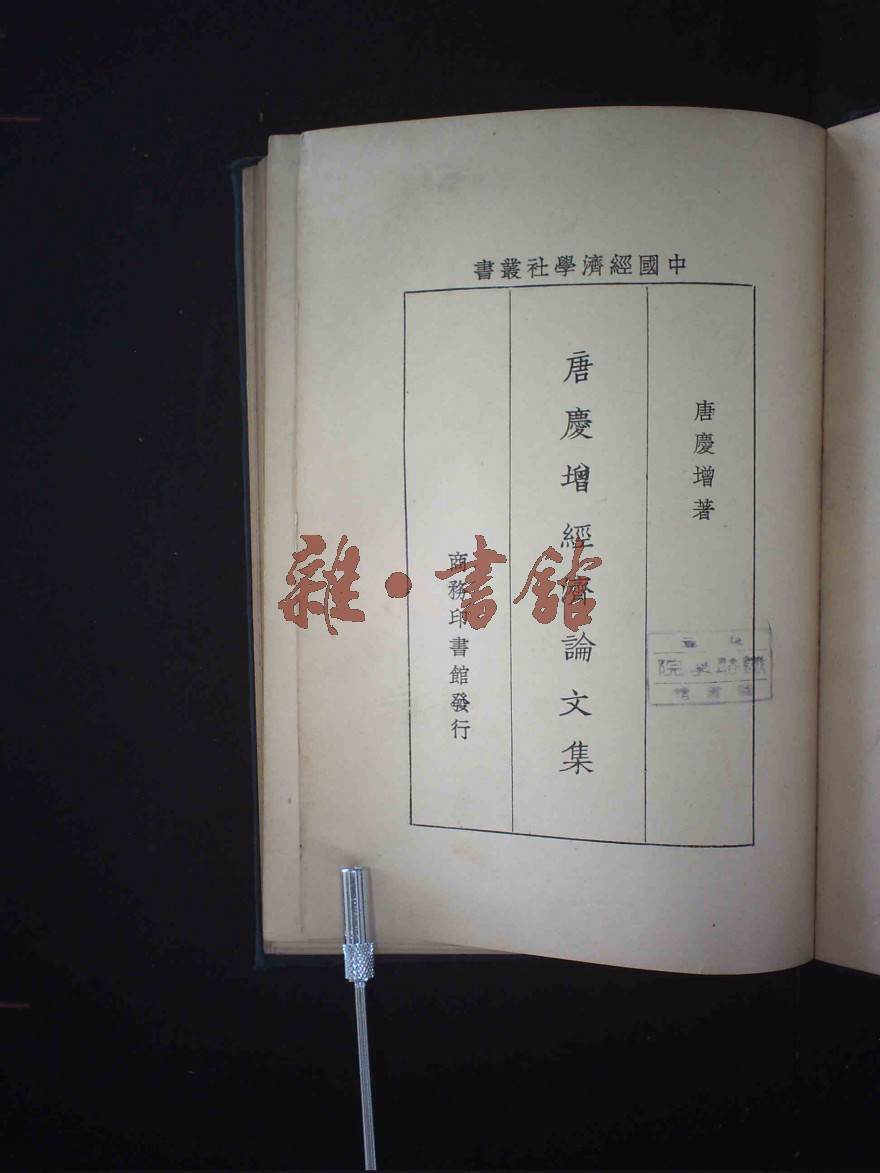 中國經濟學社叢書
唐慶增著
唐慶增經濟論文集
商務印書館發行
雜·書館